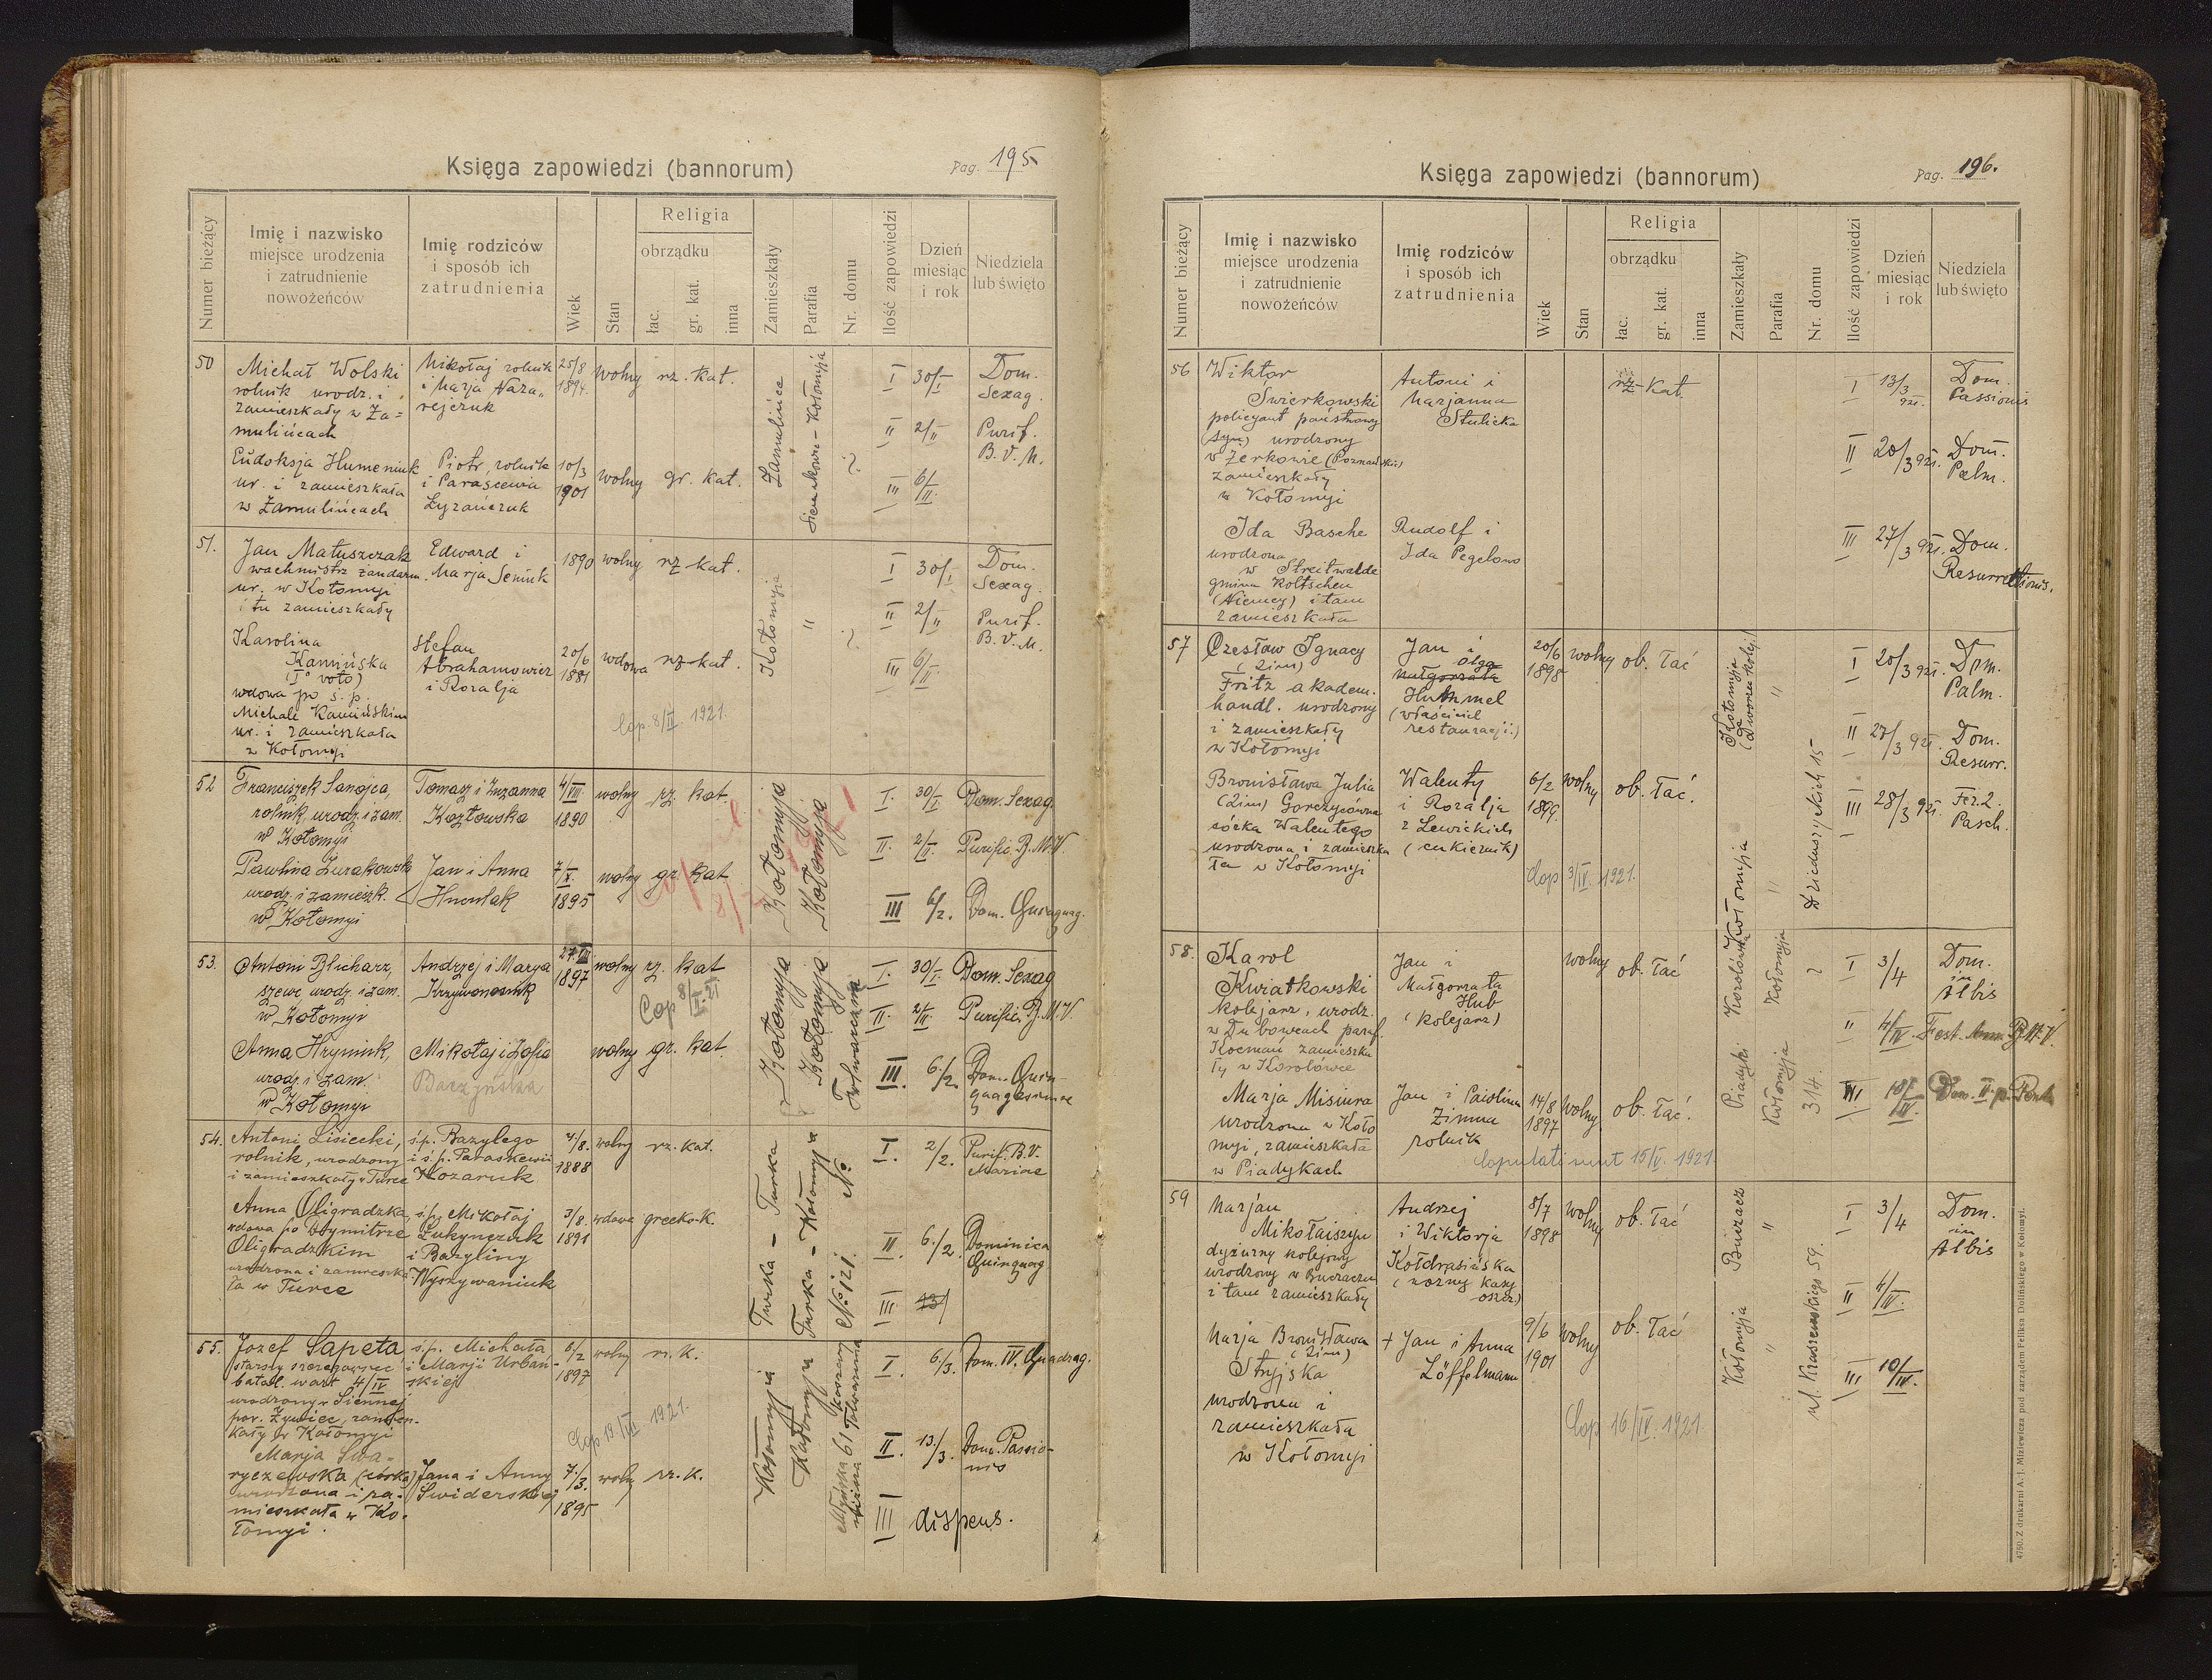 Księga zapowiedzi (bannorum)
Pag. 195
Numer bieżący
Imię i nazwisko
miejsce urodzenia
i zatrudnienie
nowożeńców
Imię rodziców
i sposób ich
zatrudnienia
Wiek
Stan
Religia
obrządku
łac.
gr. kat.
inna
Zamieszkały
Parafia
Nr. domu
Ilość zapowiedzi
Dzień
miesiąc
i rok
Niedziela
lub święto
50
Michał Wolski
rolnik urodz. i
zamieszkały w Za=
mulińcach
Mikołaj rolnik
i Marja Naza„
rejczuk
25/8
1894.
wolny
rz. kat.
Eudoksja Humeniuk
ur. i zamieszkała
w Zamulińcach
Piotr, rolnik
i Parascewia
Łyzańczuk
10/3
1901
wolny
gr. kat.
Zamulińce
Kołomyja
I 30/I Dom.
Sexag.
II 2/II Purif.
B. V. M.
III 6/II
51.
Jan Matuszczak
wachmistrz żandarm.
ur. w Kołomyi
i tu zamieszkały
Edward i
Marja Seniuk
1890
wolny
rz. kat.
Karolina
Kamińska
(I° voto)
wdowa po ś. p.
Michale Kamińskim
ur. i zamieszkała
w Kołomyi
Stefan
Abrahamowicz
i Rozalja
20/6
1881
wdowa
rz. kat.
Cop. 8/II. 1921.
Kołomyja
"
I 30/I Dom.
Sexag.
II 2/II Purif.
B. V. M.
III 6/II
52
Franciszek Sanojca,
rolnik, urodz. i zam.
w Kołomyi
Tomasz i Zuzanna
Kozłowska
4/VIII
1890
wolny
rz. kat.
Pawlina Żurakowska
urodz. i zamieszk.
w Kołomyi
Jan i Anna
Hnewlak
7/X
1895
wolny
gr. kat.
Kołomyja
Kołomyja
I. 30/I Dom. Sexag.
II. 2/II. Purific. B. M. V
III 6/2. Dom. Quinquag.
53.
Antoni Blicharz,
szewc, urodz. i zam.
w Kołomyi
Andrzej i Marya
1897
wolny
rz. kat
Cop 8/II 21
Anna Hryniuk,
urodz. i zam.
w Kołomyi
Mikołaj i Zofia
wolny
gr. kat.
Kołomyja
Kołomyja
I. 30/I Dom. Sexag
II. 2/II Purific. B. M. V.
III. 6./2. Dom. Quin-
54.
Antoni Lisiecki,
rolnik, urodzony
i zamieszkały w Turce
ś.p. Bazylego
i ś.p. Paraskewii
Kozaruk
7/8.
1888
wolny
rz. kat.
Anna Oligradzka,
wdowa po Dymitrze
Oligradzkim
urodzona i zamieszka
ła w Turce
ś.p. Mikołaj
Łukynczuk
i Bazyliny
Wyszywaniuk
3/8.
1891
wdowa
grecko-k.
Turka - Turka
Turka - Kołomyja
№ 121. №
I. 2/2. Purif. B. V.
Mariae
II. 6./2. Dominica
Quinquag
III 13/
55.
Jozef Sapeta
starszy szeregowiec
batal. wart 4/IV
urodzony w Siennej
pow. Żywiec, zamiesz-
kały w Kołomyi
ś.p. Michała
i Marji Urbań-
skiej
6/2
1897
wolny
rz. K.
Cop 13/III 1921.
Marja Swa-
ryczewska (córka)
urodzona i za-
mieszkała w Ko-
łomyi.
Jana i Anny
Swiderskiej
7./3.
1895
wolny
rz. K.
Kołomyja
Kołomyja
I. 6/3. Dom. IV. Quadrag.
II. 13./3. Dom. Passio-
nis
III dispens.
Księga zapowiedzi (bannorum)
Pag. 196.
Numer bieżący
Imię i nazwisko
miejsce urodzenia
i zatrudnienie
nowożeńców
Imię rodziców
i sposób ich
zatrudnienia
Wiek
Stan
Religia
obrządku
łac.
gr. kat.
inna
Zamieszkały
Parafia
Nr. domu
Ilość zapowiedzi
Dzień
miesiąc
i rok
Niedziela
lub święto
56
Wiktor
Swierkowski
policyant państwowy
(syn) urodzony
w Żerkowie (Poznańskie)
zamieszkały
w Kołomyi
Antoni i
Marjanna
Stulicka
rz-kat.
Ida Basche
urodzona
w Streitwalde
gmina Koltschen
(Niemcy) i tam
zamieszkała
Rudolf i
Ida Pegelow
I 13/3 921. Dom.
Passionis
II 20/3 921. Dom.
Palm.
III 27/3 921. Dom.
Resurrectionis.
57
Czesław Ignacy
(2 im)
Fritz akadem.
handl. urodzony
i zamieszkały
w Kołomyi
Jan i
Olga
Małgorzata
Hummel
(właściciel
restauracji.)
20/6
1898
wolny
ob. łać
Bronisława Julia
(2 im) Gorczycówna
córka Walentego
urodzona i zamieszka
ła w Kołomyi
Walenty
i Rozalja
z Lewickich
(cukiernik)
6/2
1899.
wolny
ob. łać.
Cop 3/IV. 1921.
Kołomyja
(Dworzec kolej.)
"
Kołomyja
"
Dzieduszyckich 15
I 20/3 921. Dom.
Palm.
II 27/3 921. Dom.
Resurr.
III 28/3 921. Fer. 2.
Pasch.
58.
Karol
Kwiatkowski
kolejarz, urodz.
w Dubowcach paraf.
Kocmań zamieszka
ły w Korolówce
Jan i
Małgorzata
Hub
(kolejarz)
wolny
ob. łać
Marja Misiura
urodzona w Koło
myi, zamieszkała
w Piadykach
Jan i Paislina
Zimna
rolnik
14/8
1897
wolny
ob. łać.
Copulati sunt 15/IV. 1921.
Korolówka
Kołomyja
Piadyki
Kołomyja
314.
I 3/4 Dom.
in
Albis
II 4/IV. Fest. Ann. B. M. V.
III 10/IV. Dom. II. p.
59
Marjan
Mikołaiszyn
dyżurny kolejowy
urodzony w Buczaczu
i tam zamieszkały
Andrzej
i Wiktorja
Kołdrasińska
(woźny kasy
oszcz.)
8/7
1898
wolny
ob. łać
Marja Bronisława
(2 im)
Stryjska
urodzona i
zamieszkała
w Kołomyi
+ Jan i Anna
Löffelmann
9/6
1901
wolny
ob. łać
Cop 16/IV. 1921.
Buczacz
"
Kołomyja
"
ul. Kraszewskiego 59.
I 3/4 Dom.
in
Albis
II 4/IV.
III 10/IV.
4750. Z drukarni A. J. Miziewicza pod zarządem Feliksa Dolińskiego w Kołomyi.